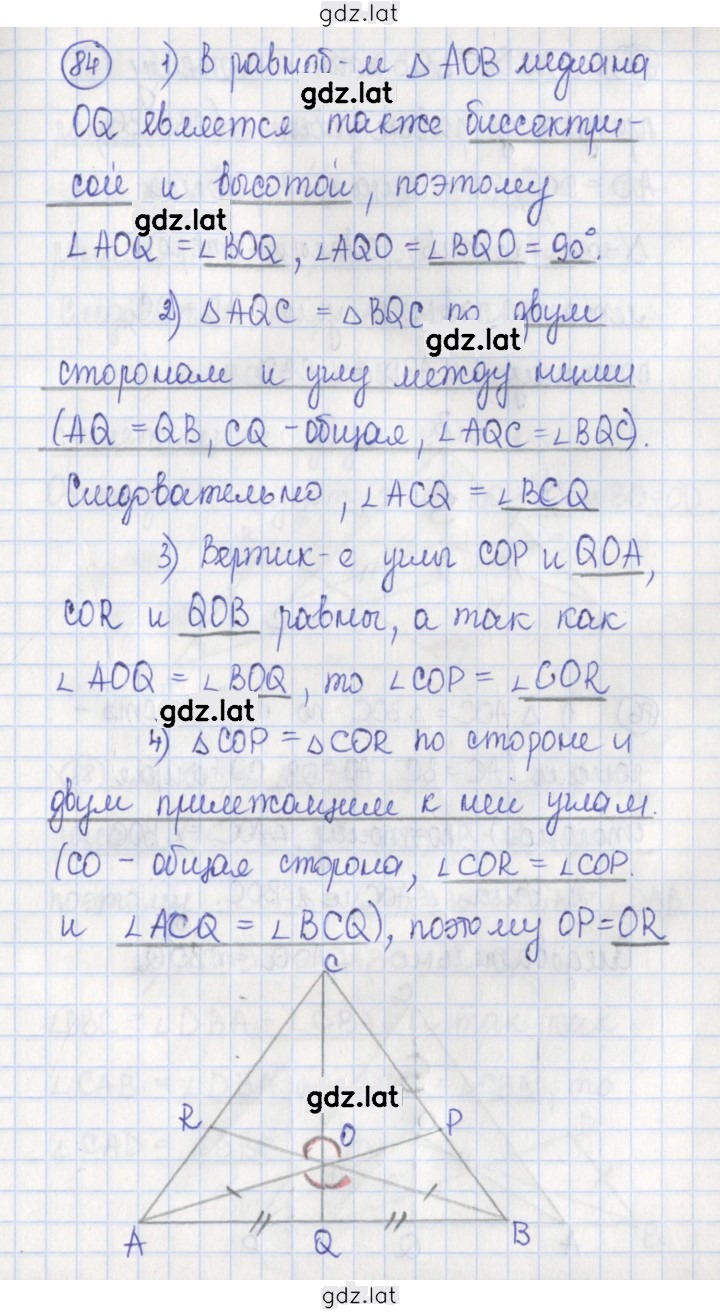 gdz.lat
84 1) В равноб-м △ AOB медиана
gdz.lat
OQ является также биссектри-
сой и высотой, поэтому
gdz.lat
∠AOQ = ∠BOQ, ∠AQO = ∠BQO = 90°.
2) △AQC = △BQC по двум
gdz.lat
сторонам и углу между ними
(AQ = QB, CQ - общая, ∠AQC = ∠BQC).
Следовательно, ∠ACQ = ∠BCQ
3) Вертик-е углы COP и QOA,
COR и QOB равны, а так как
∠AOQ = ∠BOQ, то ∠COP = ∠COR
gdz.lat
4) △COP = △COR по стороне и
двум прилежащим к ней углам.
(CO - общая сторона, ∠COR = ∠COP.
и ∠ACQ = ∠BCQ), поэтому OP = OR
C
gdz.lat
R O P
A Q B
gdz.lat